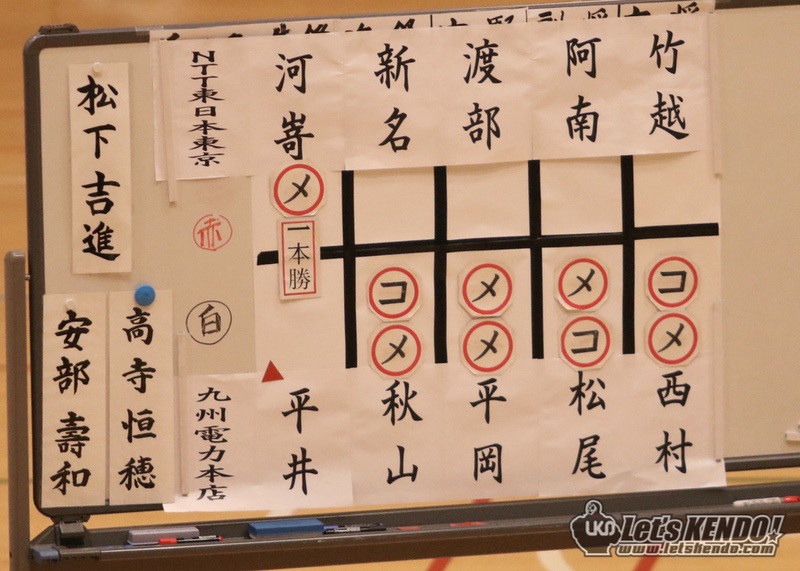 松下吉進
高寺恒穂
安部壽和
NTT東日本東京
河嵜
新名
渡部
阿南
竹越
赤
白
メ
一本勝
コ
メ
メ
メ
メ
コ
コ
メ
九州電力本店
平井
秋山
平岡
松尾
西村
LKD
Let's KENDO!
www.letskendo.com